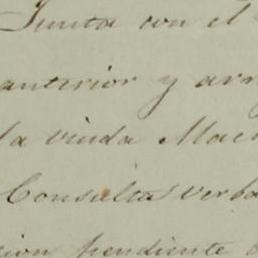 Junta con el
anterior y arr
la viuda Mac
Consulta verba
cion pendiente